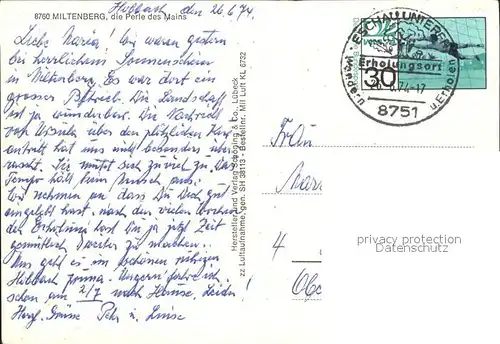 8760 MILTENBERG, die Perle des Mains
Hobbach, den 26.6.74.
Liebe Maria! Wir waren gestern
bei herrlichem Sonnenschein
in Miltenberg. Es war dort ein
grosser Betrieb. Die Landschaft
ist ja wunderbar. Die Nachricht
von Ursula über den plötzlichen
hat uns nicht besonders über-
rascht. Sie mutet sich zu viel zu. Das
Tempo hält kein Mensch aus.
Wir nehmen an dass Du Dich gut
eingelebt hast. nach den vielen Wochen
der Erholung hast Du ja jetzt Zeit
gemütlich weiter zu machen.
Uns geht es im schönen ruhigen
Hobbach prima. Ungern fahren wir
schon am 2/7 nach Hause. Leider!
Herzl. Grüsse Peter u. Luise
Hersteller und Verlag Schöning & Co., Lübeck
zz Luftaufnahme, gen. SH 38113 - Bestellnr. Mil Luft KL 6732
ESCHAU, UNTERFR
Erholungsort
26.6.74-17
Wandern u. Erholen
8751
30
Frau
4
privacy protection
Datenschutz